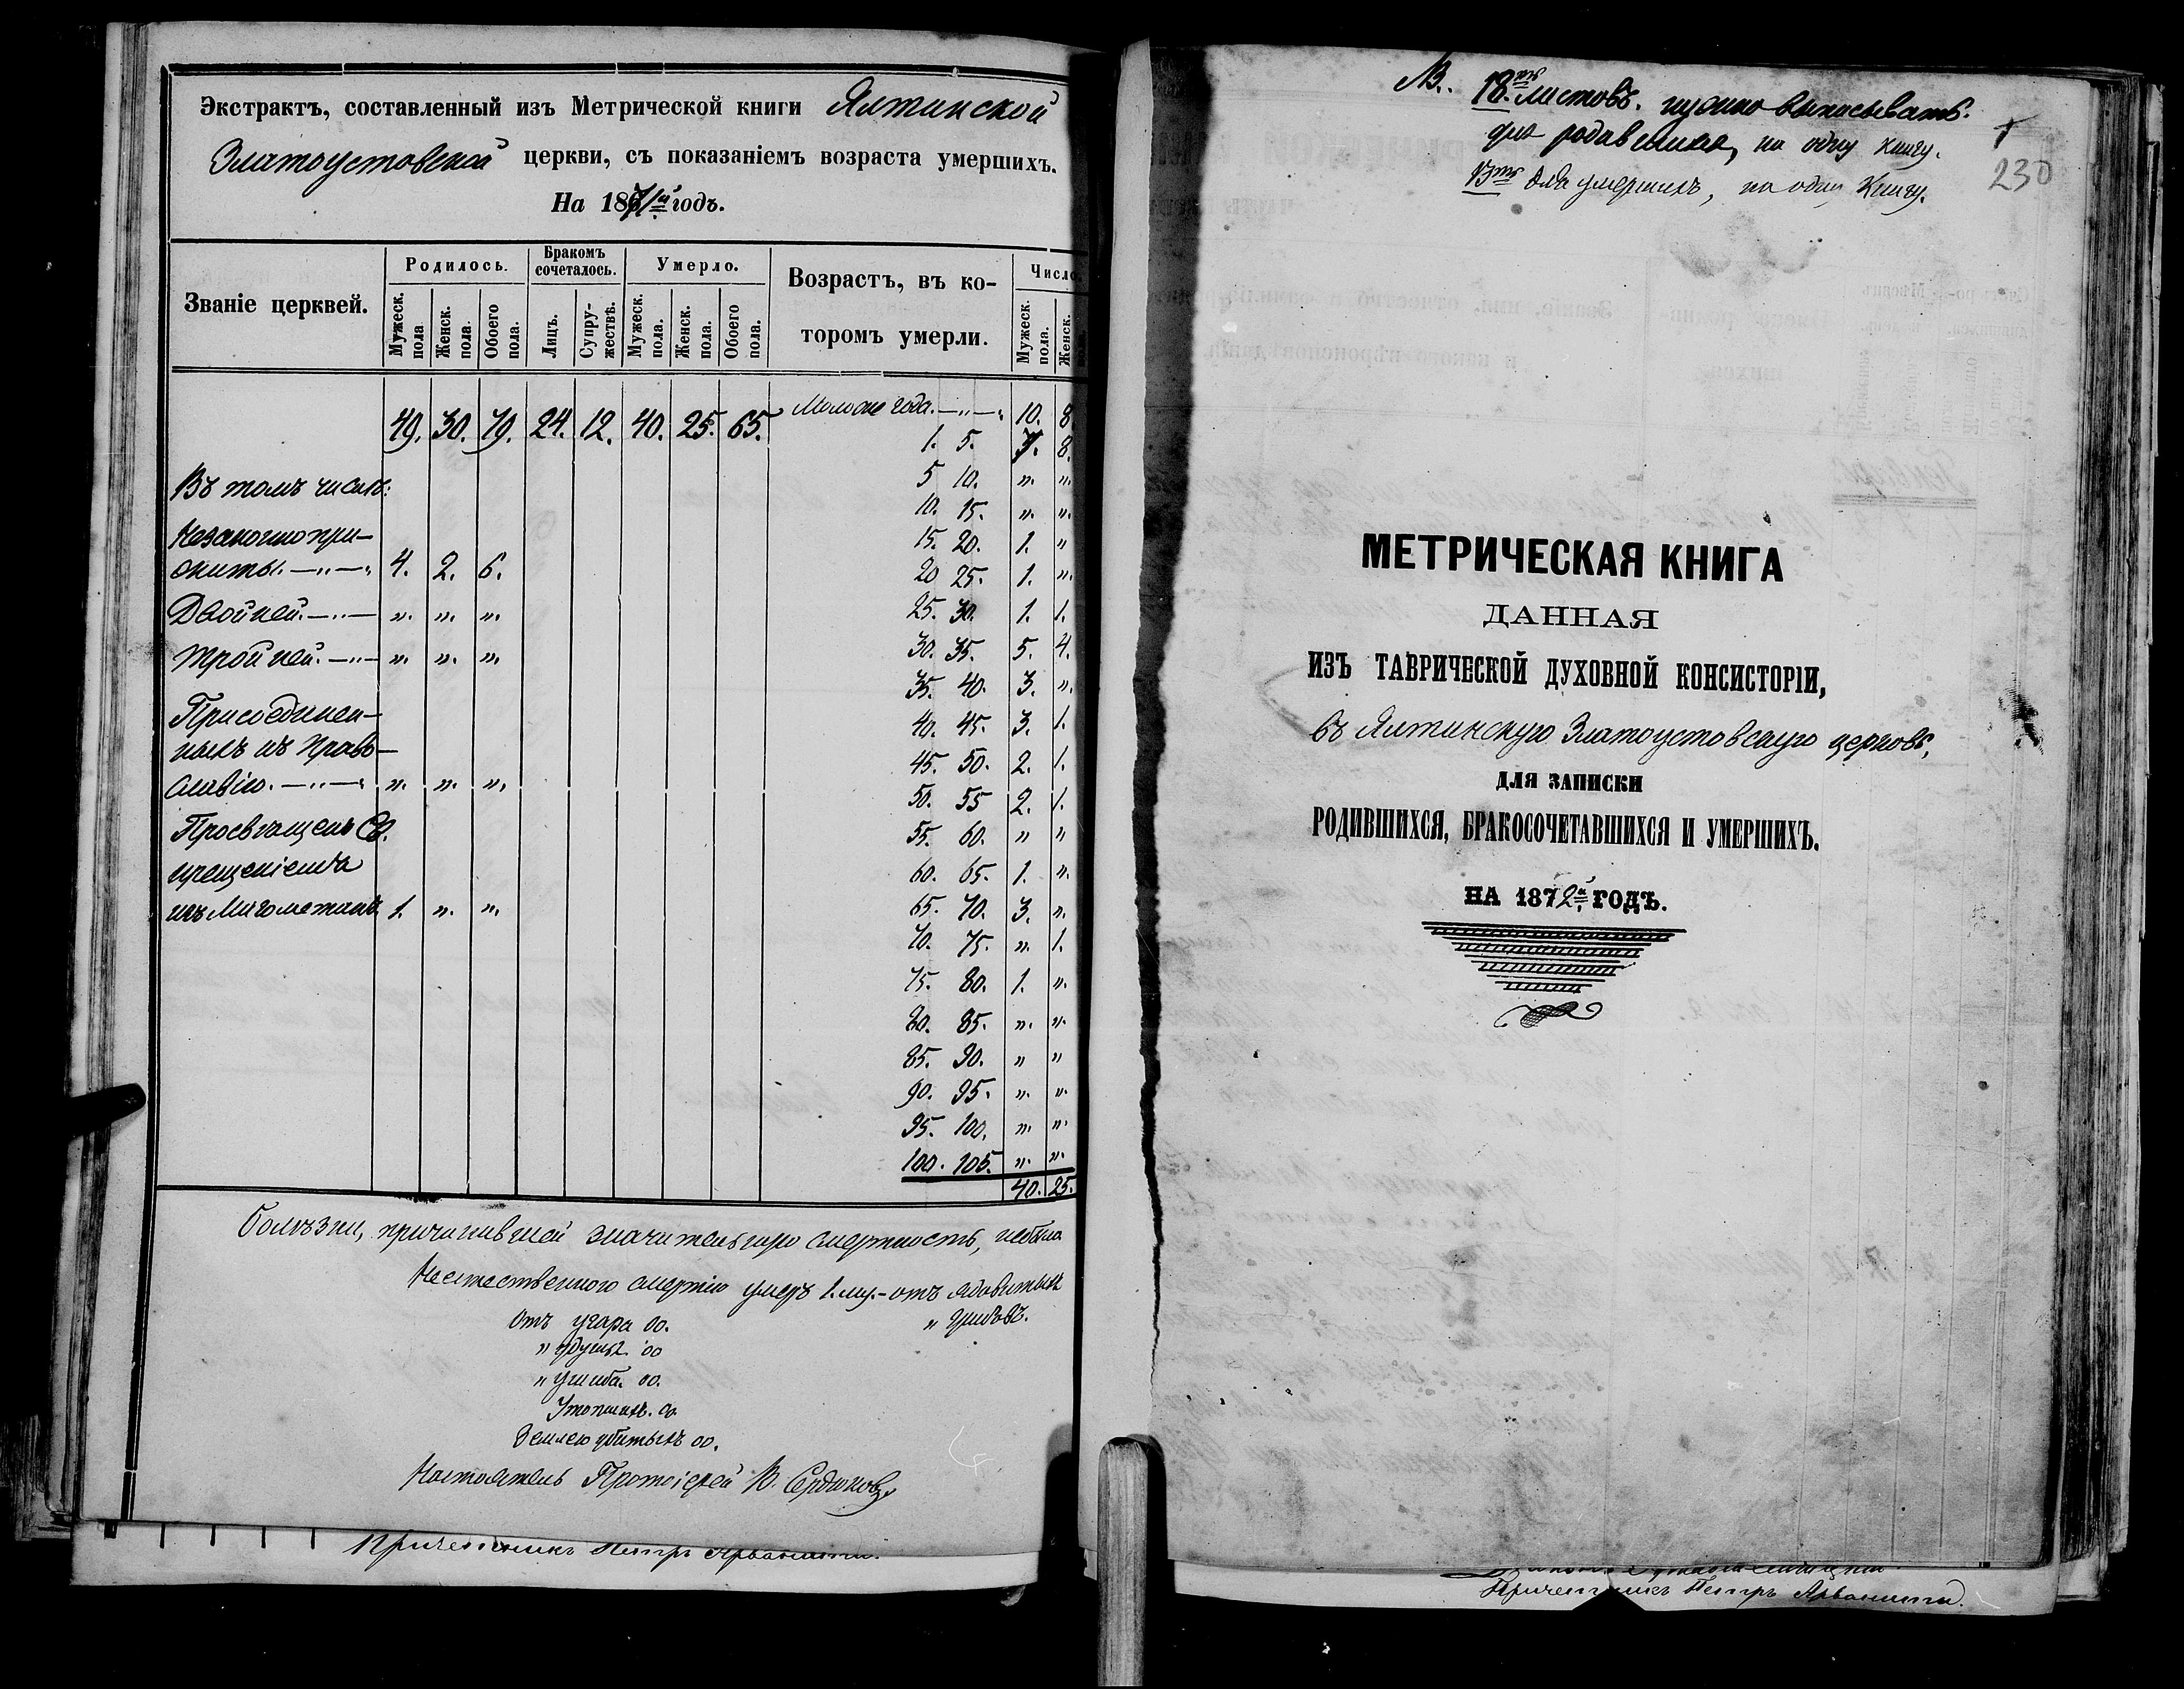 Экстрактъ, составленный изъ Метрической книги Ялтинской
Златоустовской церкви, съ показаніемъ возраста умершихъ.
На 1871й годъ.
Званіе церквей. Родилось. Бракомъ сочеталось. Умерло. Возрастъ, въ ко-торомъ умерли. Число
Мужеск. пола Женск. пола. Обоего пола. Лицъ. Супру-жествъ. Мужеск. пола. Женск. пола. Обоего пола. Мужеск. пола. Женск. пола.
49. 30. 79. 24. 12. 40. 25. 65. Моложе года. —„—„ 10. 8
1. 5. 7. 8.
Въ томъ числѣ: 5 10. „. „.
10. 15. „. „.
Незаконнопри- 15. 20. 1. „
житы. —„—„ 4. 2. 6. 20 25. 1. „.
Двойней. —„— „. „. „. 25. 30. 1. 1.
Тройней. —„— „. „. „. 30. 35. 5. 4.
35. 40. 3. „.
Присоединен- 40. 45. 3. 1.
ныхъ къ Право- 45. 50. 2. 1.
славію. —„—„ „. „. „. 50. 55 2. 1.
Просвѣщенъ Св. 55. 60. „ „
крещеніемъ 60. 65. 1. „.
изъ Магометанъ 1. „. „. 65. 70. 3. „.
70. 75. „. 1.
75. 80. 1. „.
80. 85. „. „.
85. 90. „ „
90. 95. „. „.
95. 100. „. „.
100. 105. „. „.
40. 25.
Болѣзни, причинившей значительную смертность, небыло
Неестественною смертію умеръ 1. му.- отъ ядовитыхъ
„ грибовъ.
Отъ угара 00.
„ 00
„ ушиба. 00.
Утопшихъ. 00.
Землею убитыхъ 00.
Настоятель Протоіерей В. Сердюковъ.
Причетникъ Петръ Арванити.
NB. 18.ть листовъ. нужно выписывать.
для родившихся, на одну книгу.
13ть для умершихъ, на одну Книгу.
230
МЕТРИЧЕСКАЯ КНИГА
ДАННАЯ
ИЗЪ ТАВРИЧЕСКОЙ ДУХОВНОЙ КОНСИСТОРІИ,
въ Ялтинскую Златоустовскую церковь,
ДЛЯ ЗАПИСКИ
РОДИВШИХСЯ, БРАКОСОЧЕТАВШИХСЯ И УМЕРШИХЪ.
НА 1872й ГОДЪ.
Причетникъ Петръ Арванити.